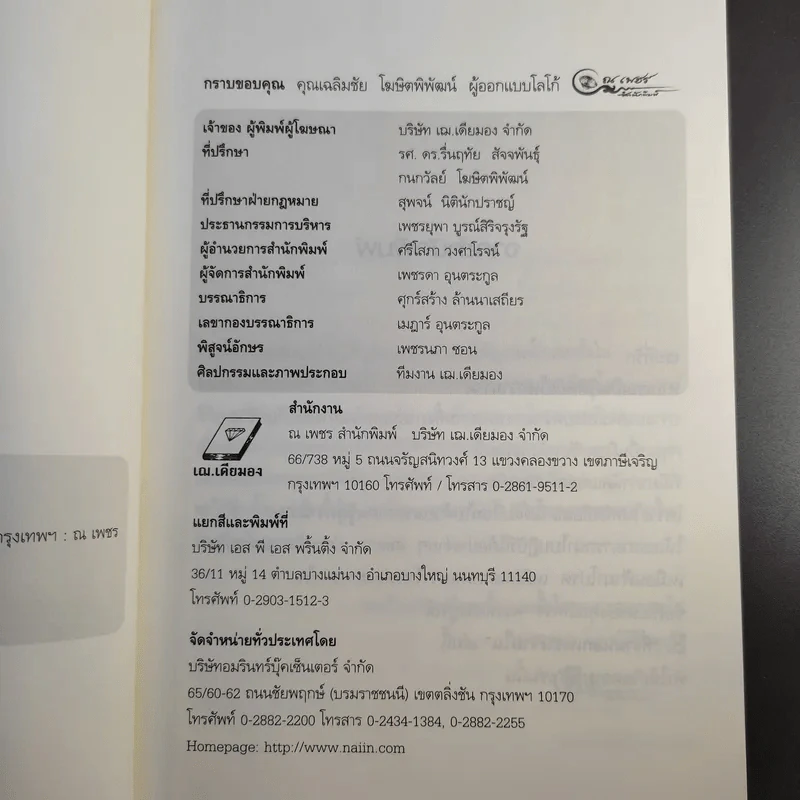 กราบขอบคุณ คุณเฉลิมชัย โฆษิตพิพัฒน์ ผู้ออกแบบโลโก้ ณ เพชร
เจ้าของ ผู้พิมพ์ผู้โฆษณา บริษัท เฌ.เดียมอง จำกัด
ที่ปรึกษา รศ. ดร.รื่นฤทัย สัจจพันธุ์
กนกวัลย์ โฆษิตพิพัฒน์
ที่ปรึกษาฝ่ายกฎหมาย สุพจน์ นิตินักปราชญ์
ประธานกรรมการบริหาร เพชรยุพา บูรณ์สิริจรุงรัฐ
ผู้อำนวยการสำนักพิมพ์ ศรีโสภา วงศาโรจน์
ผู้จัดการสำนักพิมพ์ เพชรดา อุนตระกูล
บรรณาธิการ ศุกร์สร้าง ล้านนาเสถียร
เลขากองบรรณาธิการ เมฎาร์ อุนตระกูล
พิสูจน์อักษร เพชรนภา ซอน
ศิลปกรรมและภาพประกอบ ทีมงาน เฌ.เดียมอง
สำนักงาน
ณ เพชร สำนักพิมพ์ บริษัท เฌ.เดียมอง จำกัด
66/738 หมู่ 5 ถนนจรัญสนิทวงศ์ 13 แขวงคลองขวาง เขตภาษีเจริญ
กรุงเทพฯ 10160 โทรศัพท์ / โทรสาร 0-2861-9511-2
เฌ.เดียมอง
แยกสีและพิมพ์ที่
บริษัท เอส พี เอส พริ้นติ้ง จำกัด
36/11 หมู่ 14 ตำบลบางแม่นาง อำเภอบางใหญ่ นนทบุรี 11140
โทรศัพท์ 0-2903-1512-3
จัดจำหน่ายทั่วประเทศโดย
บริษัทอมรินทร์บุ๊คเซ็นเตอร์ จำกัด
65/60-62 ถนนชัยพฤกษ์ (บรมราชชนนี) เขตตลิ่งชัน กรุงเทพฯ 10170
โทรศัพท์ 0-2882-2200 โทรสาร 0-2434-1384, 0-2882-2255
Homepage: http://www.naiin.com
กรุงเทพฯ : ณ เพชร